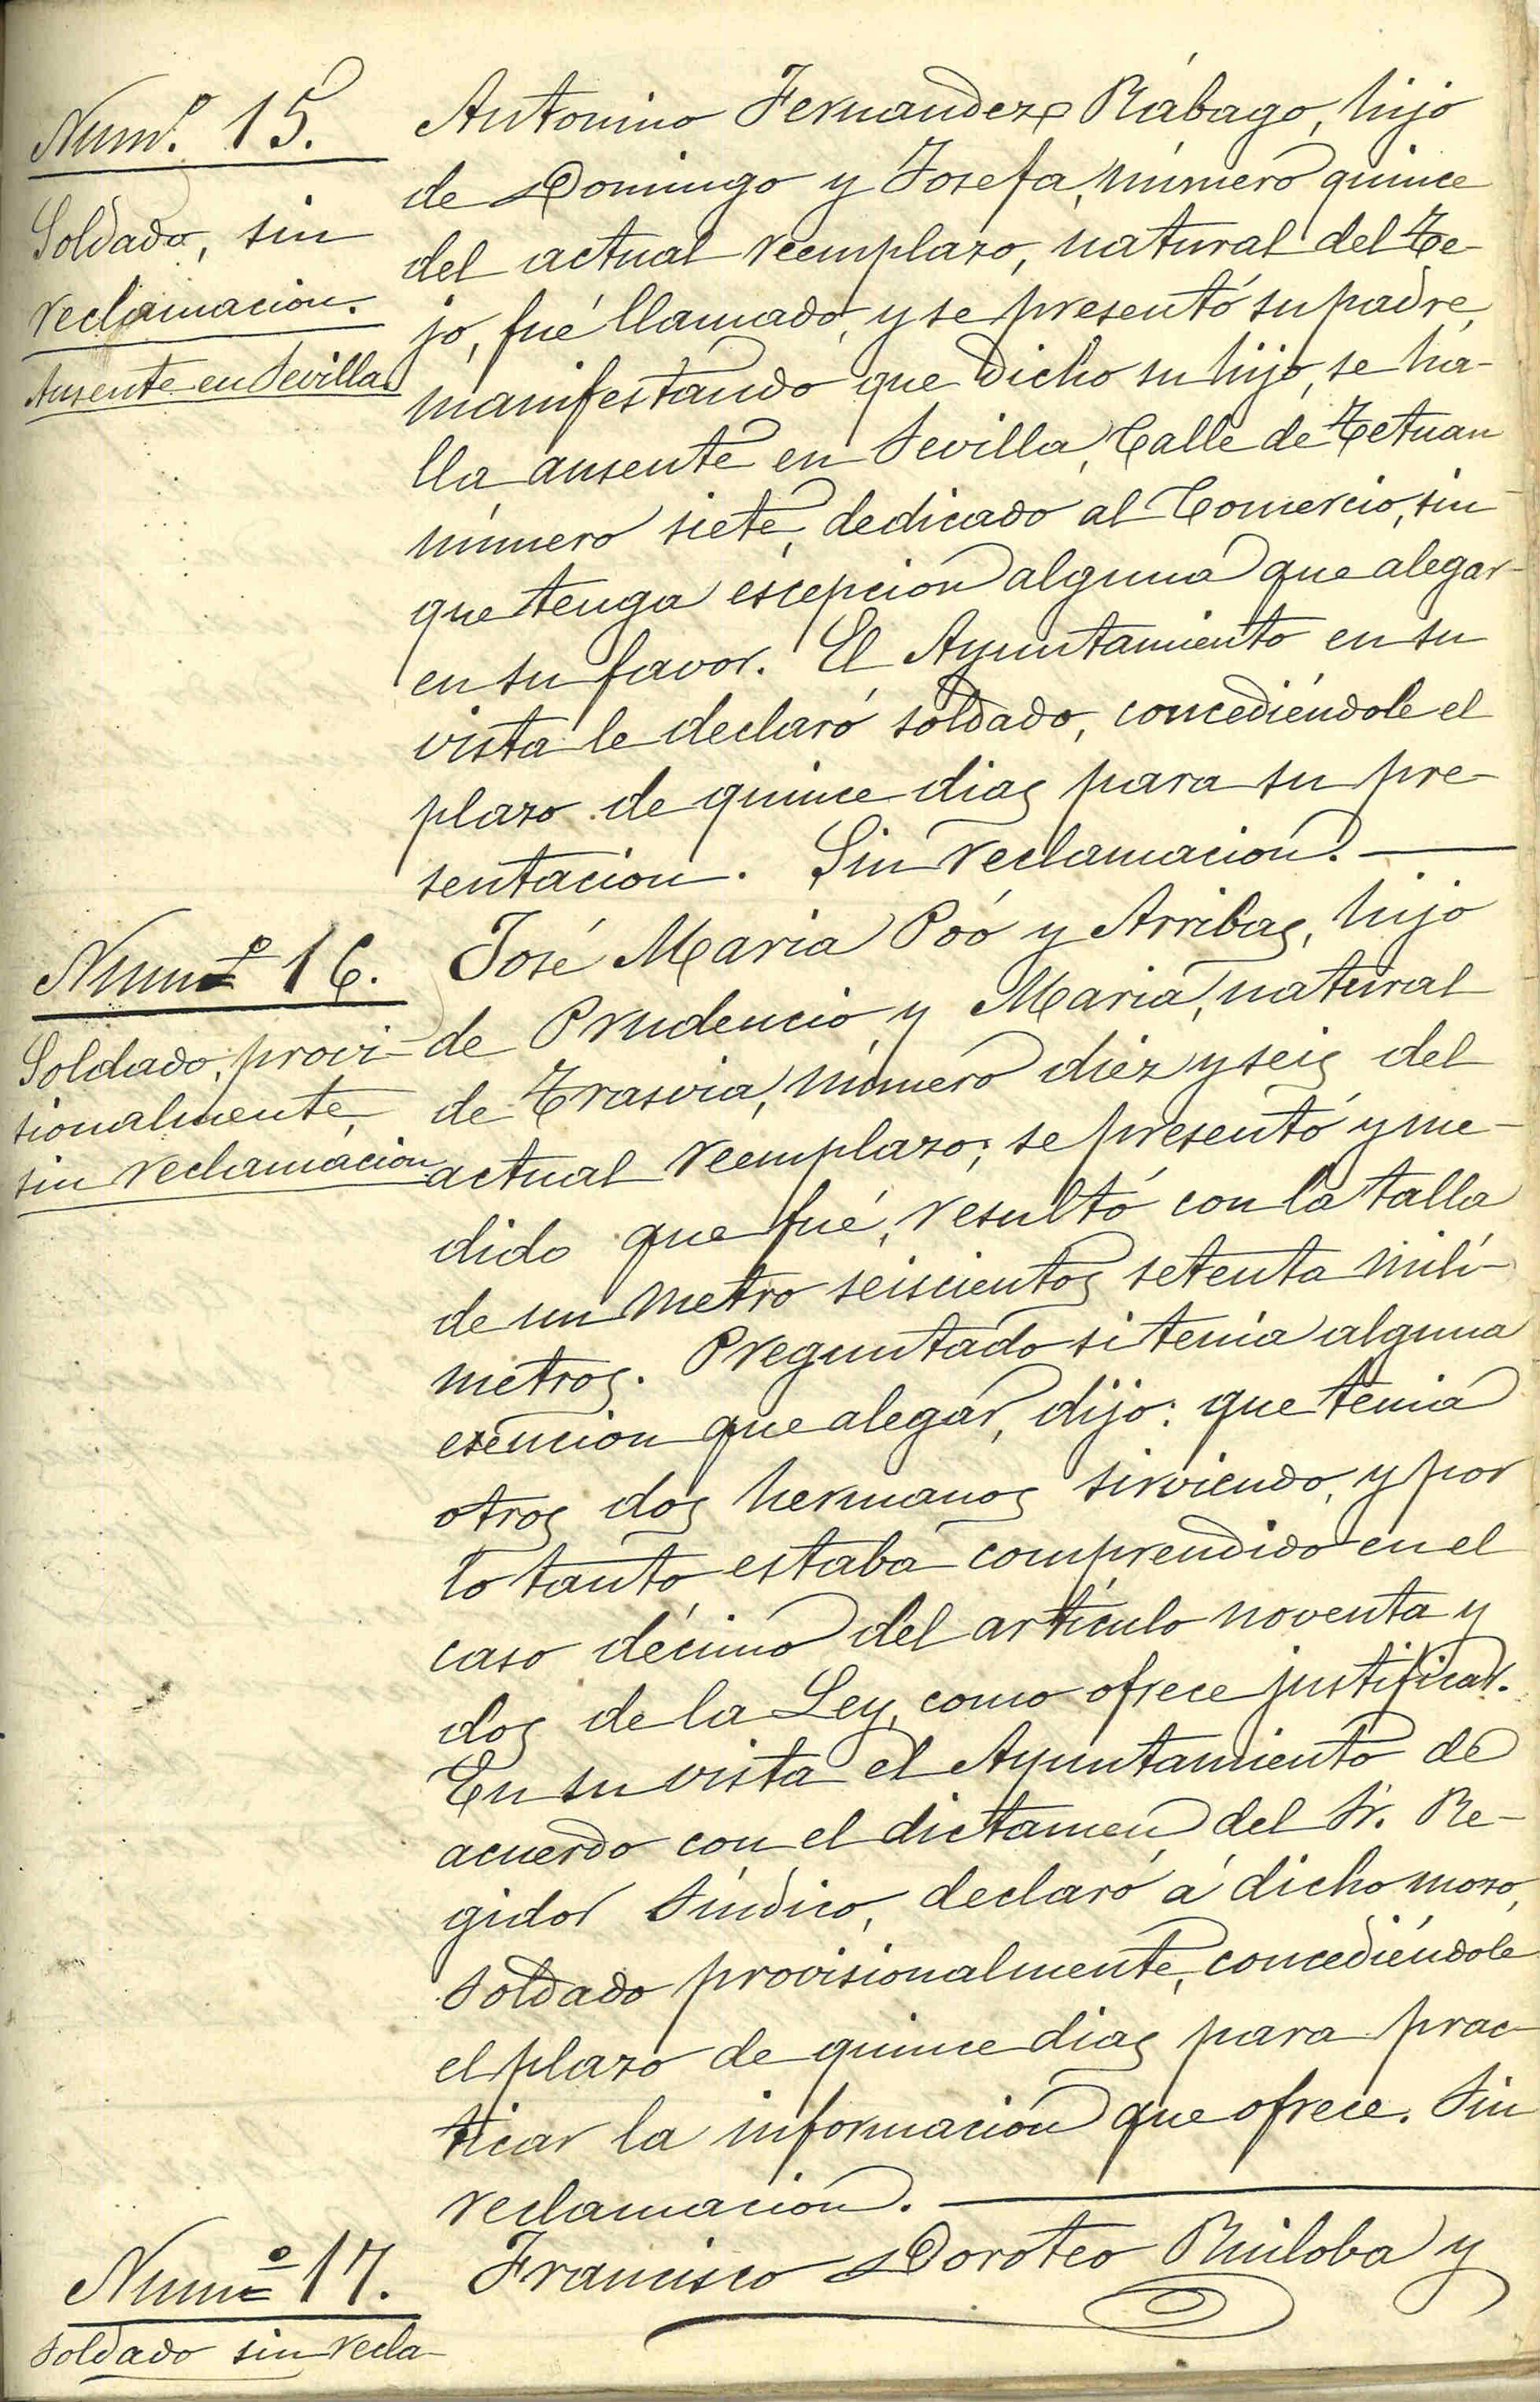 Num.º 15.
Soldado, sin
reclamacion.
Ausente en Sevilla.
Antonino Fernandez Rábago, hijo
de Domingo y Josefa, número quince
del actual reemplazo, natural del Te-
jo, fué llamado, y se presentó su padre,
manifestando que dicho su hijo, se ha-
lla ausente en Sevilla, Calle de Tetuan
número siete, dedicado al Comercio, sin
que tenga escepcion alguna que alegar
en su favor. El Ayuntamiento en su
vista le declaró soldado, concediéndole el
plazo de quince dias para su pre-
sentacion. Sin reclamacion.
Num.º 16.
Soldado, provi-
sionalmente,
sin reclamacion
José Maria Póo y Arribas, hijo
de Prudencio y Maria, natural
de Trasvia, número diez y seis del
actual reemplazo; se presentó y me-
dido que fué, resultó con la talla
de un metro seiscientos setenta milí-
metros. Preguntado si tenia alguna
exencion que alegar, dijo: que tenia
otros dos hermanos sirviendo, y por
lo tanto estaba comprendido en el
caso décimo del artículo noventa y
dos de la Ley, como ofrece justificar.
En su vista el Ayuntamiento de
acuerdo con el dictamen del Sr. Re-
gidor Síndico, declaró á dicho mozo,
soldado provisionalmente, concediéndole
el plazo de quince dias para prac-
ticar la informacion que ofrece. Sin
reclamacion.
Num.º 17.
Soldado sin recla-
Francisco Doroteo Ruiloba y